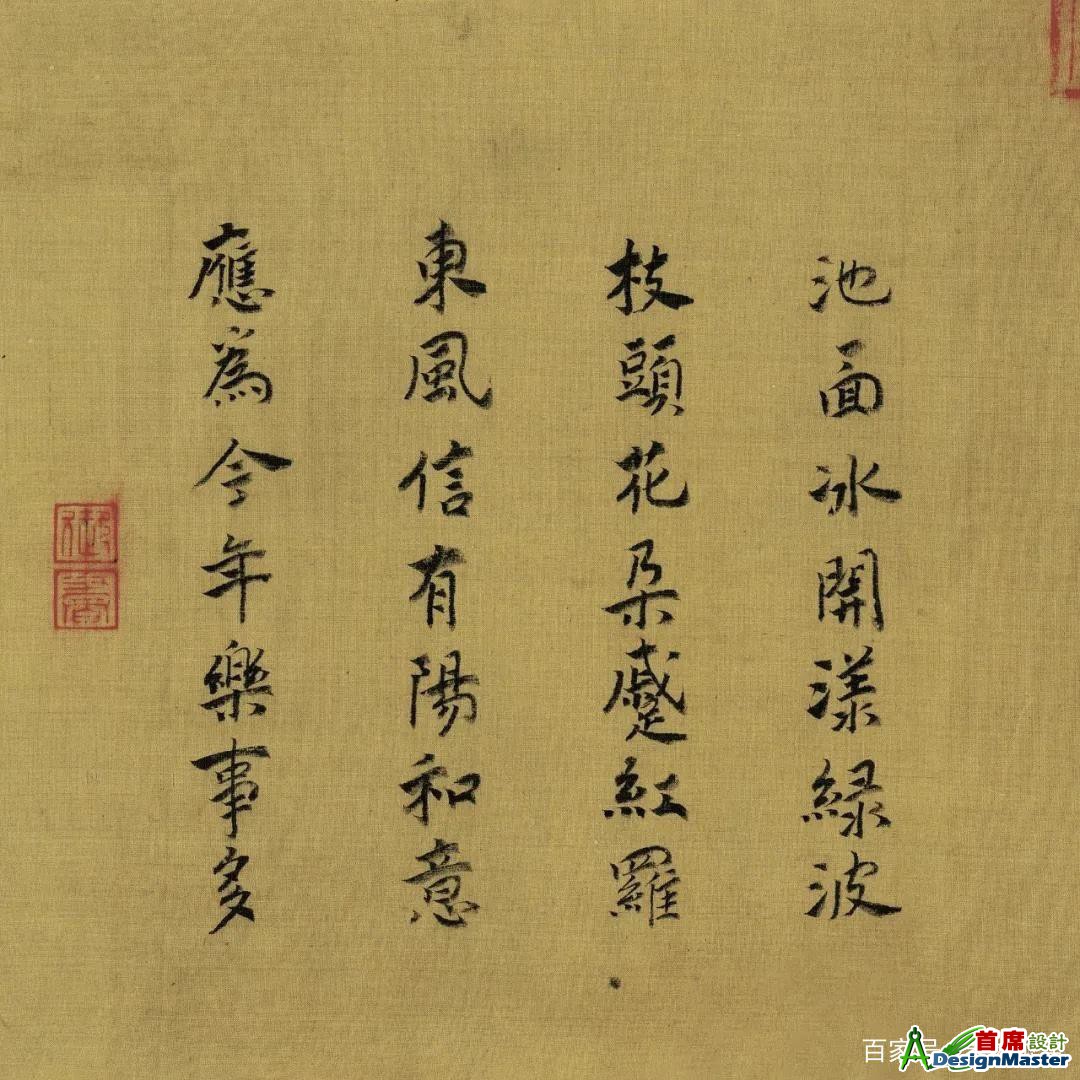 池面冰開漾緑波
枝頭花朵蹙紅羅
東風信有陽和意
應為今年樂事多
御書
百家号
首席設計
DesignMaster